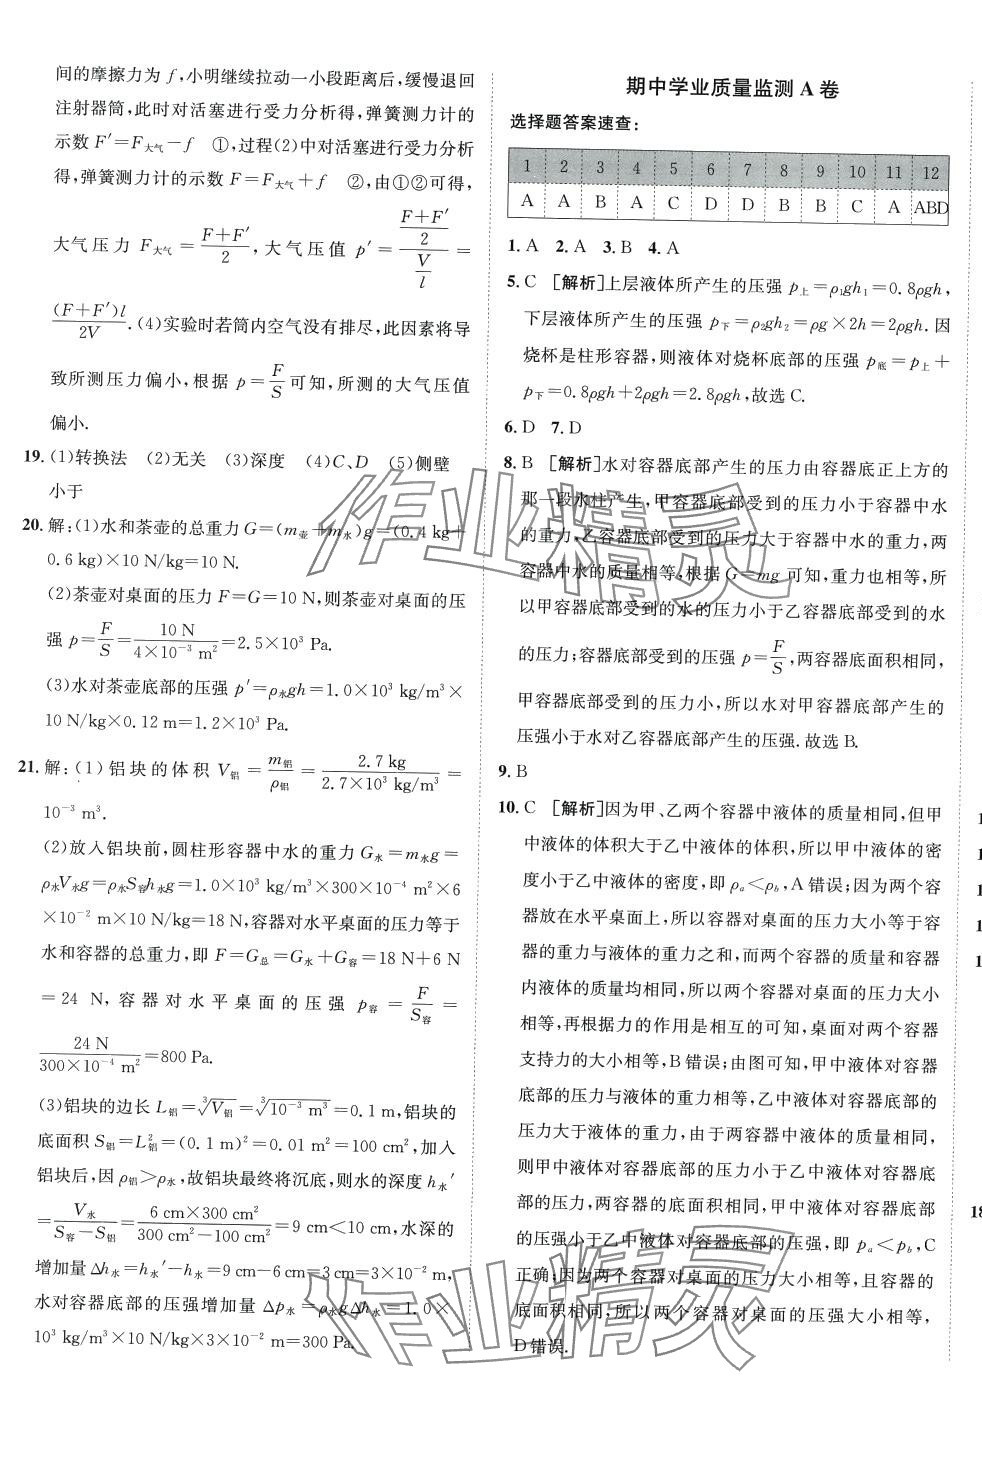 间的摩擦力为 f,小明继续拉动一小段距离后,缓慢退回
注射器筒,此时对活塞进行受力分析得,弹簧测力计的
示数 F′=F大气-f ①,过程(2)中对活塞进行受力分析
得,弹簧测力计的示数 F=F大气+f ②,由①②可得,
大气压力 F大气=(F+F′)/2,大气压值 p′=((F+F′)/2)/(V/l)=
(F+F′)l/2V.(4)实验时若筒内空气没有排尽,此因素将导
致所测压力偏小,根据 p=F/S 可知,所测的大气压值
偏小.
19. (1)转换法 (2)无关 (3)深度 (4)C、D (5)侧壁
小于
20. 解:(1)水和茶壶的总重力 G=(m壶+m水)g=(0.4 kg+
0.6 kg)×10 N/kg=10 N.
(2)茶壶对桌面的压力 F=G=10 N,则茶壶对桌面的压
强 p=F/S=10 N/(4×10⁻³ m²)=2.5×10³ Pa.
(3)水对茶壶底部的压强 p′=ρ水gh=1.0×10³ kg/m³×
10 N/kg×0.12 m=1.2×10³ Pa.
21. 解:(1)铝块的体积 V铝=m铝/ρ铝=2.7 kg/(2.7×10³ kg/m³)=
10⁻³ m³.
(2)放入铝块前,圆柱形容器中水的重力 G水=m水g=
ρ水V水g=ρ水S容h水g=1.0×10³ kg/m³×300×10⁻⁴ m²×6
×10⁻² m×10 N/kg=18 N,容器对水平桌面的压力等于
水和容器的总重力,即 F=G总=G水+G容=18 N+6 N
=24 N,容器对水平桌面的压强 p容=F/S容=
24 N/(300×10⁻⁴ m²)=800 Pa.
(3)铝块的边长 L铝=³√V铝=³√(10⁻³ m³)=0.1 m,铝块的
底面积 S铝=L²铝=(0.1 m)²=0.01 m²=100 cm²,加入
铝块后,因 ρ铝>ρ水,故铝块最终将沉底,则水的深度 h水′
=V水/(S容-S铝)=(6 cm×300 cm²)/(300 cm²-100 cm²)=9 cm<10 cm,水深的
增加量 Δh水=h水′-h水=9 cm-6 cm=3 cm=3×10⁻² m,
水对容器底部的压强增加量 Δp水=ρ水gΔh水=1.0×
10³ kg/m³×10 N/kg×3×10⁻² m=300 Pa.
期中学业质量监测 A 卷
选择题答案速查:
1 2 3 4 5 6 7 8 9 10 11 12
A A B A C D D B B C A ABD
1. A 2. A 3. B 4. A
5. C [解析]上层液体所产生的压强 p上=ρ₁gh₁=0.8ρgh,
下层液体所产生的压强 p下=ρ₂gh₂=ρg×2h=2ρgh. 因
烧杯是柱形容器,则液体对烧杯底部的压强 p底=p上+
p下=0.8ρgh+2ρgh=2.8ρgh,故选 C.
6. D 7. D
8. B [解析]水对容器底部产生的压力由容器底正上方的
那一段水柱产生,甲容器底部受到的压力小于容器中水
的重力,乙容器底部受到的压力大于容器中水的重力,两
容器中水的质量相等,根据 G=mg 可知,重力也相等,所
以甲容器底部受到的水的压力小于乙容器底部受到的水
的压力;容器底部受到的压强 p=F/S,两容器底面积相同,
甲容器底部受到的压力小,所以水对甲容器底部产生的
压强小于水对乙容器底部产生的压强.故选 B.
9. B
10. C [解析]因为甲、乙两个容器中液体的质量相同,但甲
中液体的体积大于乙中液体的体积,所以甲中液体的密
度小于乙中液体的密度,即 ρa<ρb,A 错误;因为两个容
器放在水平桌面上,所以容器对桌面的压力大小等于容
器的重力与液体的重力之和,而两个容器的质量和容器
内液体的质量均相同,所以两个容器对桌面的压力大小
相等,再根据力的作用是相互的可知,桌面对两个容器
支持力的大小相等,B 错误;由图可知,甲中液体对容器
底部的压力与液体的重力相等,乙中液体对容器底部的
压力大于液体的重力,由于两容器中液体的重力相同,
则甲中液体对容器底部的压力小于乙中液体对容器底
部的压力,两容器的底面积相同,甲中液体对容器底部
的压强小于乙中液体对容器底部的压强,即 pa<pb,C
正确;因为两个容器对桌面的压力大小相等,且容器的
底面积相同,所以两个容器对桌面的压强大小相等,
D 错误.
作业精灵
作业精灵
1
1
1
1
1
18